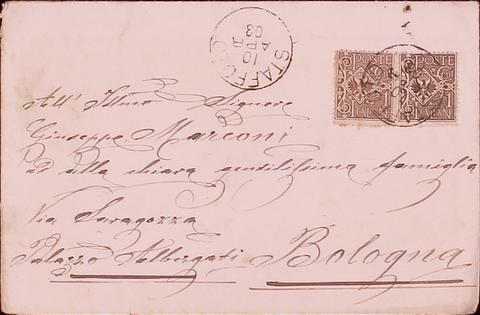 STAFFOLO
10
APR
03
POSTE
POSTE
All' Illmo Signore
Giuseppe Marconi
ed alla chiara gentilissima famiglia
Via Saragozza
Palazzo Albergati Bologna